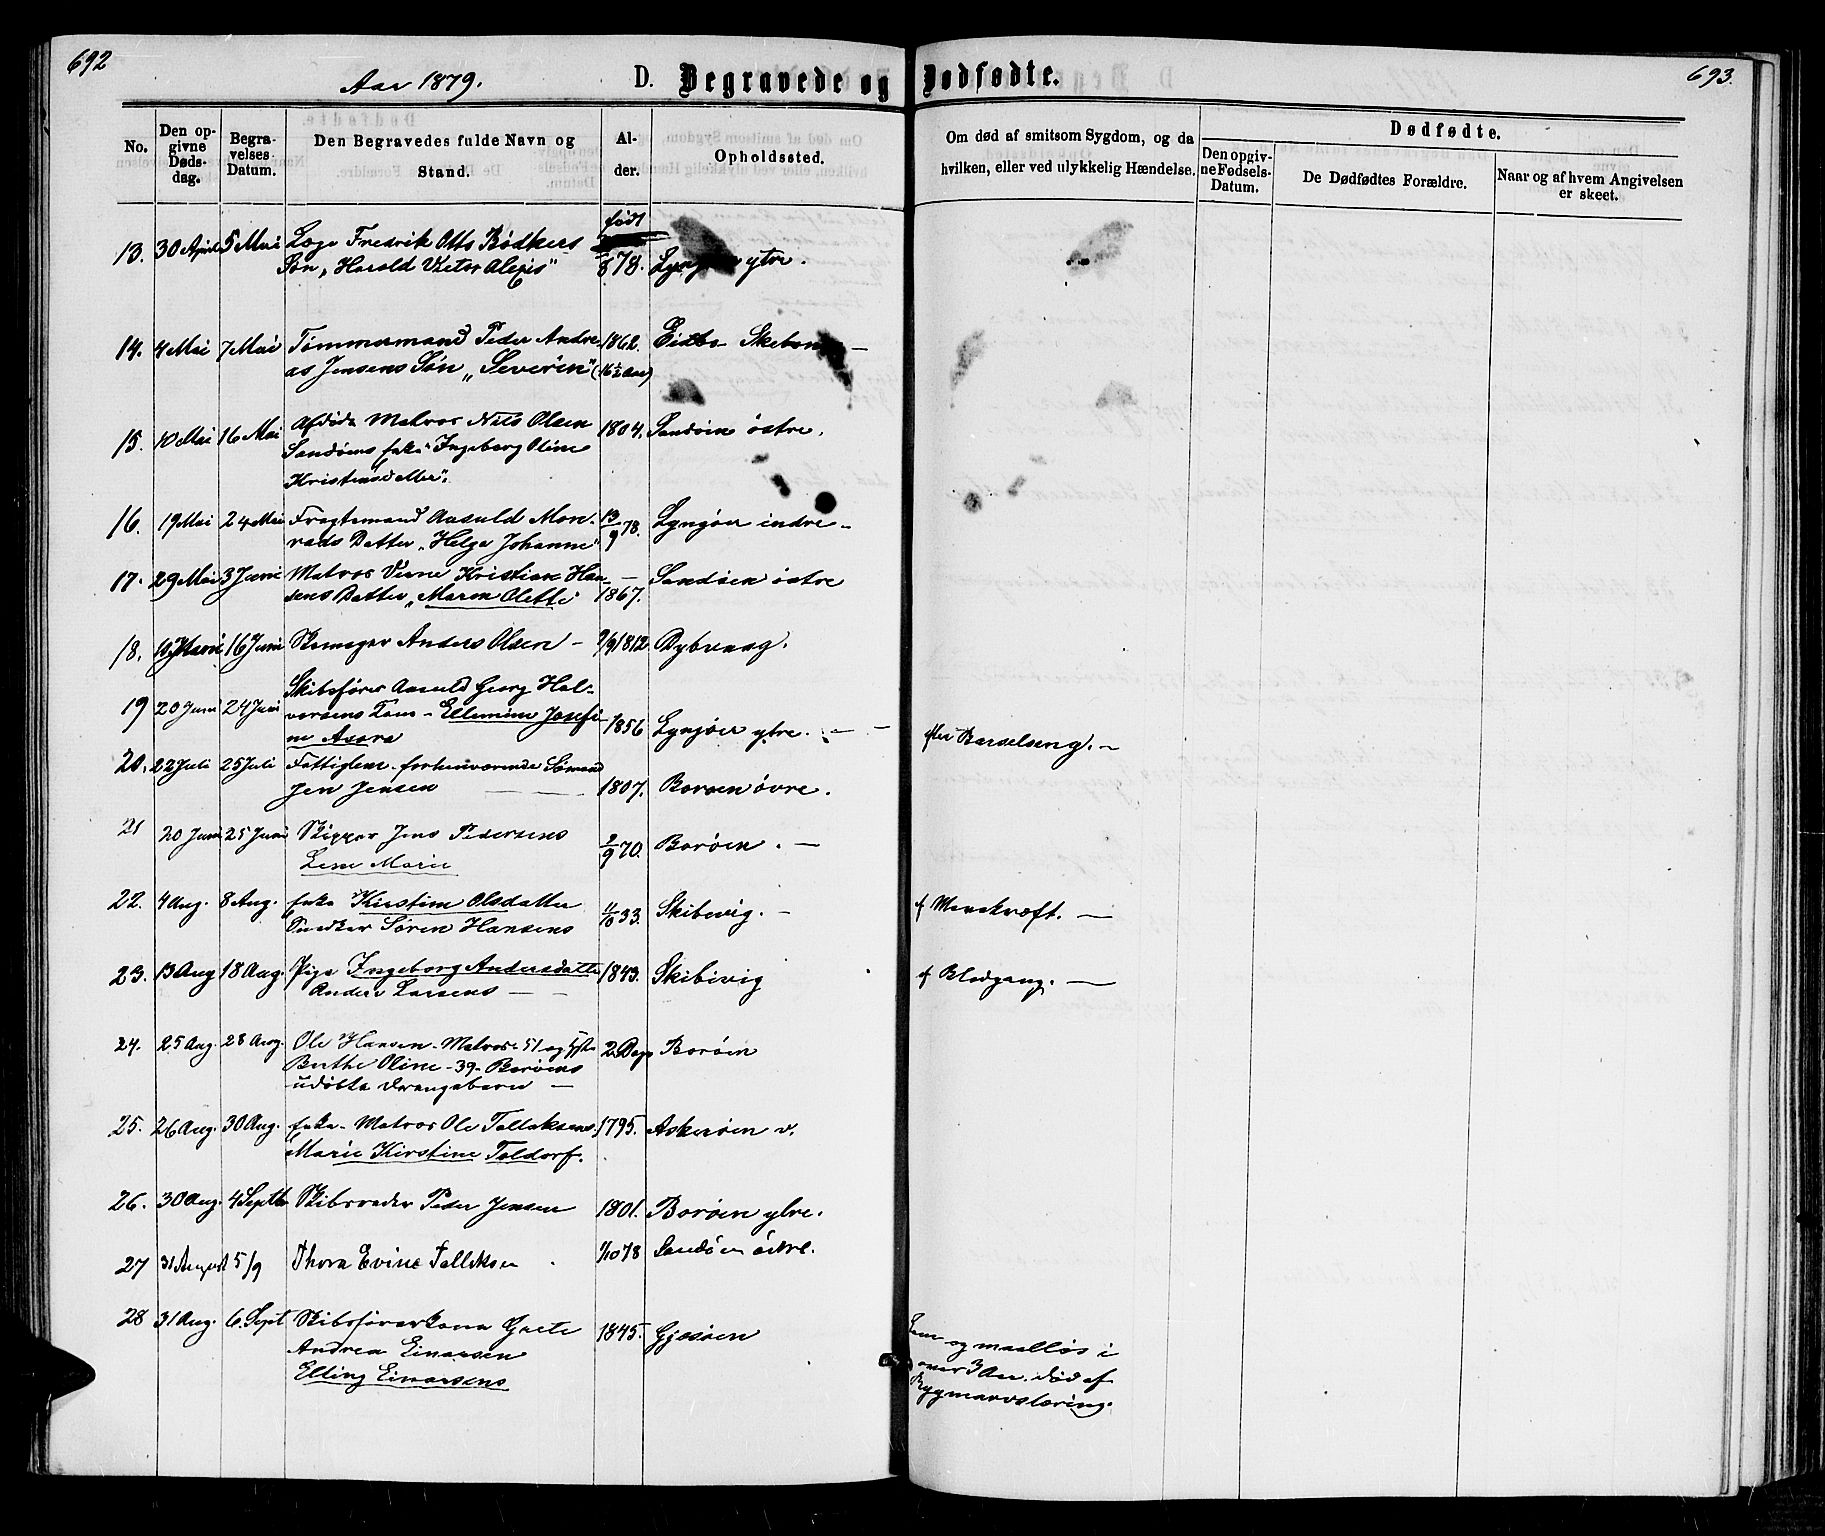 692
Aar 1879.
D. Begravede og Dødfødte.
693.
No.
Den opgivne Dødsdag.
Begravelses Datum.
Den Begravedes fulde Navn og Stand.
Alder.
Opholdssted.
Om død af smitsom Sygdom, og da hvilken, eller ved ulykkelig Hændelse.
Dødfødte.
Den opgivne Fødsels-Datum.
De Dødfødtes Forældre.
Naar og af hvem Angivelsen er skeet.
født
13. 30 April 5 Mai Læge Fredrik Otto Bødkers 878. Lyngøer ytre.
Søn, "Harald Victor Alexis"
14. 4 Mai 7 Mai Tømmermand Peder Andre- 1862. Eidbo
as Jensens Søn "Severin" (16½ Aar)
15. 10 Mai 16 Mai Afdøde Matros Nils Olsen 1804. Sandøen østre.
Sandøens Enke "Ingeborg Oline
Kristensdatter".
16. 19 Mai 24 Mai Fragtemand Aasuld Mon- 13/9 78. Lyngøer indre
rads Datter "Helga Johanne"
17. 29 Mai 3 Juni Matros Kristian Han- Sandøen østre
sens Datter, "Maren Olette" 1867.
18. 16 Juni Skomager Anders Olsen 1812. Dybvaag.
19 20 Juni 24 Juni Skibsfører Aasuld Georg Hal-
vorsens Kone - Ellemine Josefi- 1856 Lyngøer ytre. efter Barselseng.
ne Asora
20. 22 Juli 25 Juli Fattiglem forhenværende Sømand
Jen Jensen 1807. Borøen øvre.
21 20 Juni 25 Juni Skipper Jens Pedersens 2/9 70. Borøen.
Lene Marie
22. 4 Aug. 8 Aug. Enke Kirstine Olsdatter 11/10 33. Skibvig. af Mavekræft.
Snedker Søren Hansens
23. 13 Aug 18 Aug. Pige Ingeborg Andersdatter 1843. Skibvig af Blodgang.
Anders Larsens
24. 25 Aug. 28 Aug. Ole Hansen - Matros 51 og
Berthe Oline - 39 - Borøens 2 Dage Borøen
udøbte Drengebarn
25. 26 Aug. 30 Aug. Enke - Matros Ole Tallaksens 1795. Askerøen v.
Marie Kirstine Toldorf.
26. 30 Aug. 4 Septbr Skibsreder Peder Jensen 1801. Borøen ytre.
27 31 August 5/9 Thora Evine Tallaksen 1/10 78 Sandøen østre.
28 31 Aug. 6. Sept Skibsførerkone Grete 1845. Gjesøen
Andrea Einarsen
Elling Einarsens
Lam og maalløs i
over 3 Aar. død af
Rygmarvstæring.